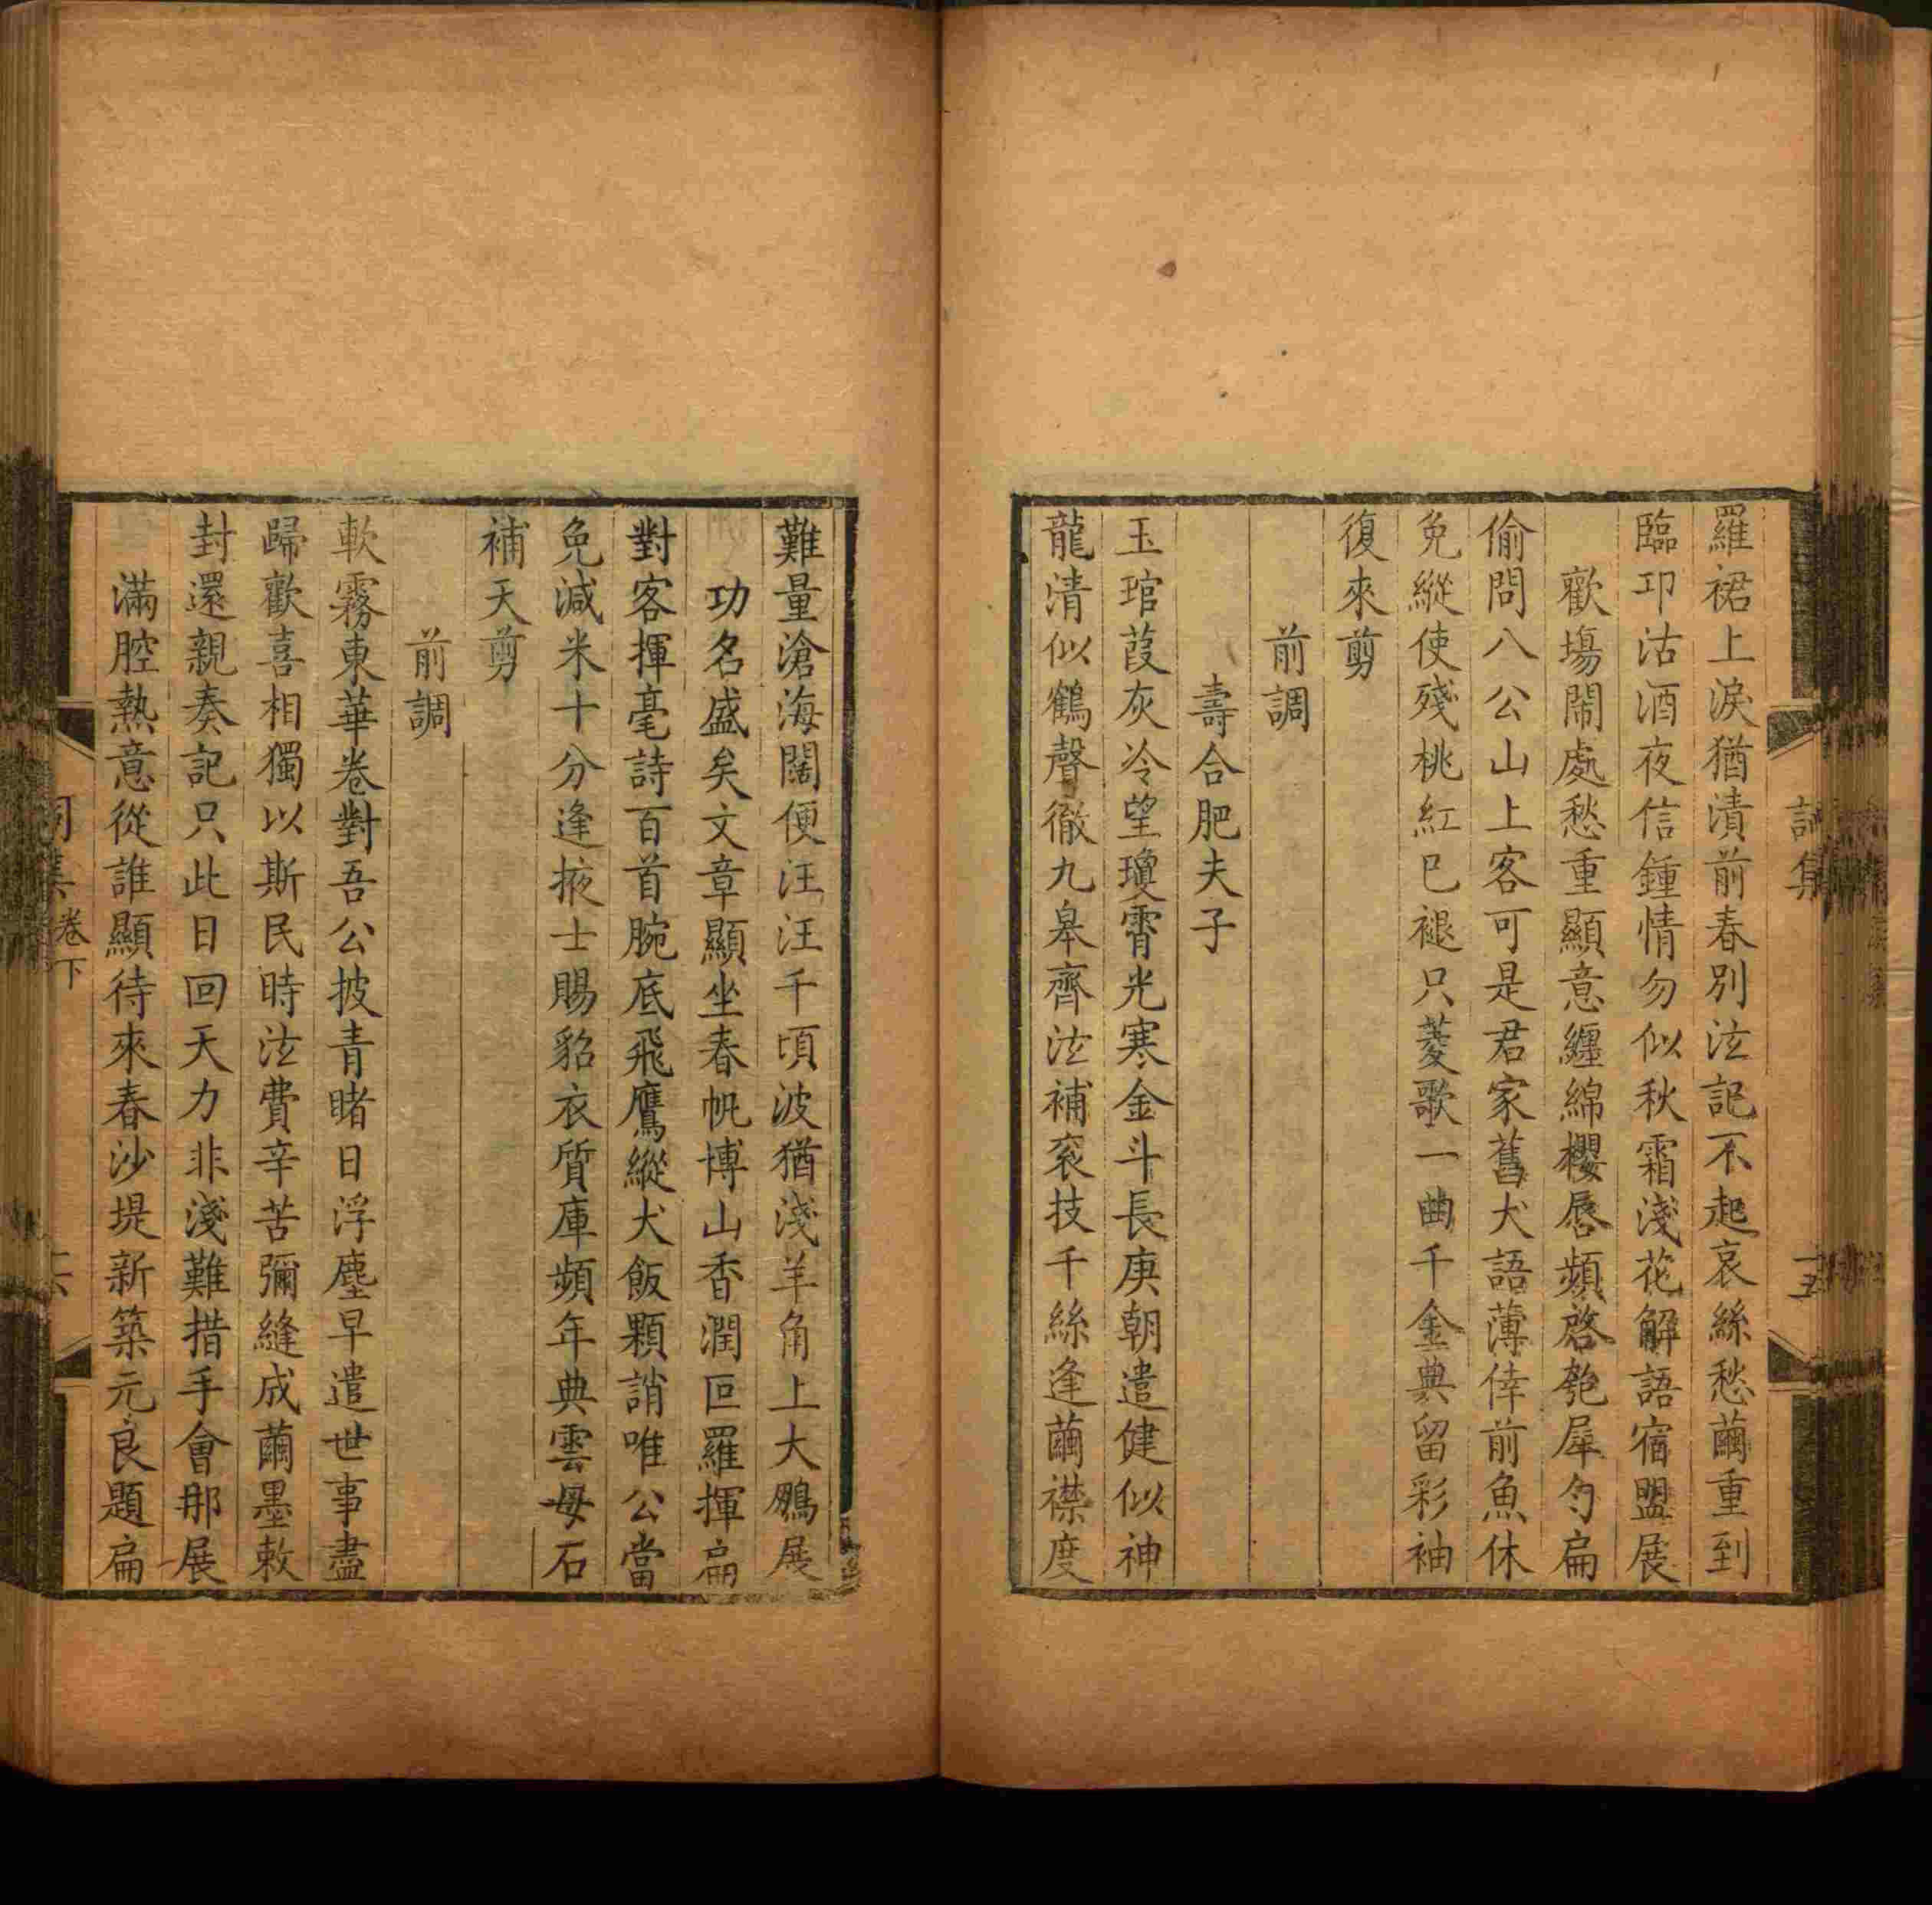 羅裙上淚猶漬前春別泫記不起哀絲愁繭重到
臨邛沽酒夜信鍾情勿似秋霜淺花解語宿盟展
歡場鬧處愁重顯意纏綿櫻唇頻啓匏犀勺扁
偷問八公山上客可是君家舊犬語薄倖前魚休
免縱使殘桃紅已褪只菱歌一曲千金典留彩袖
復來剪
前調
壽合肥夫子
玉琯葭灰冷望瓊霄光寒金斗長庚朝遣健似神
龍清似鶴聲徹九皋齊泫補衮技千絲逢繭襟度
難量滄海闊便汪汪千頃波猶淺羊角上大鵬展
功名盛矣文章顯坐春帆博山香潤叵羅揮扁
對客揮毫詩百首腕底飛鷹縱犬飯顆誚唯公當
免減米十分逢掖士賜貂衣質庫頻年典雲母石
補天剪
前調
軟霧東華卷對吾公披青睹日浮塵早遣世事盡
歸歡喜相獨以斯民時泫費辛苦彌縫成繭墨敕
封還親奏記只此日回天力非淺難措手會那展
滿腔熱意從誰顯待來春沙堤新築元良題扁
卷下